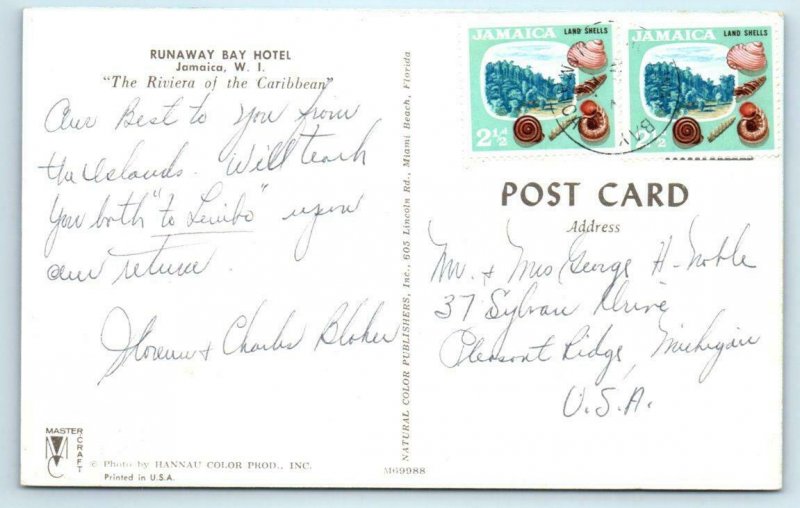 RUNAWAY BAY HOTEL
Jamaica, W. I.
"The Riviera of the Caribbean"
Our Best to You from
the Islands. Will teach
you both "to Limbo" upon
our return.
Florence + Charles Bloker
MASTER CRAFT
© Photo by HANNAU COLOR PROD., INC.
Printed in U.S.A.
NATURAL COLOR PUBLISHERS, Inc., 605 Lincoln Rd., Miami Beach, Florida
M69988
JAMAICA LAND SHELLS
2½
JAMAICA LAND SHELLS
2½
BAY
POST CARD
Address
Mr. + Mrs George H. Noble
37 Sylvan Drive
Pleasant Ridge, Michigan
U.S.A.